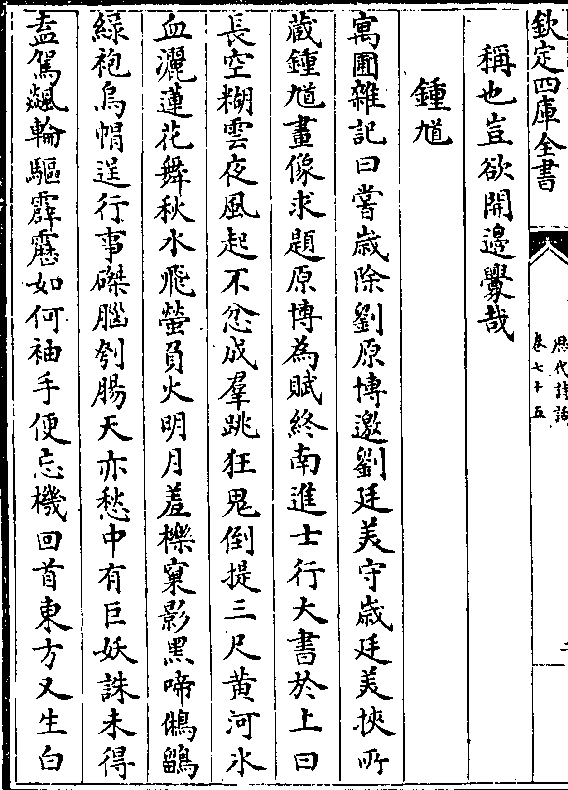 欽定四庫全書
歷代詩話
卷七十五
稱也豈欲開邊釁哉
鍾馗
寓圃雜記曰嘗歳除劉原博邀劉廷美守歳廷美挾所
蔵鍾馗畫像求題原博為賦終南進士行大書於上曰
長空糊雲夜風起不忿成羣跳狂鬼倒提三尺黄河氷
血灑蓮花舞秋水飛螢負火明月羞櫟窠影黑啼鵂鶹
緑袍烏帽逞行事磔腦刳腸天亦愁中有巨妖誅未得
盍駕飈輪驅霹靂如何袖手便忘機回首東方又生白